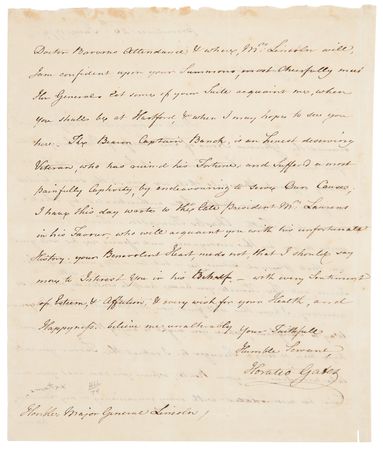 Doctor Barons Attendance & where, Mrs. Lincoln will,
I am confident upon your Summons, most Chearfully meet
Her General. Let some of your Suite acquaint me, when
you shall be at Hartford, & when I may hopes to see you
here. The Bearer Captain Banck, is an honest deserving
Veteran, who has ruined his Fortune, and Suffer'd a most
Painfully Captivity, by endeavouring to serve Our Cause;
I have this day wrote to the Late President Mr. Laurens
in his Favour, who will acquaint you with his unfortunate
History. your Benevolent Heart, needs not, that I should say
more to Interest You in his Behalf. – with every Sentiment
of Esteem, & Affection, & every wish for your Health, and
Happyness. believe me unalterably Your Faithfull
Humble Servant,
Horatio Gates
Honble: Major General Lincoln,